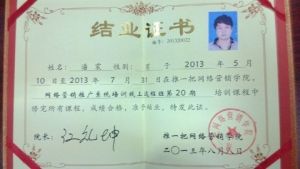 结业证书
编号:201320022
姓名: 潘 性别: 男 于 2013 年 5 月
10 日至 2013 年 7 月 31 日在推一把网络营销学院,
网络营销推广系统培训线上远程班第20期 培训课程中
修完所有课程,成绩合格,准予结业,特发此证。
院长: 江礼坤
推一把网络营销学院
二〇一三年八月八日